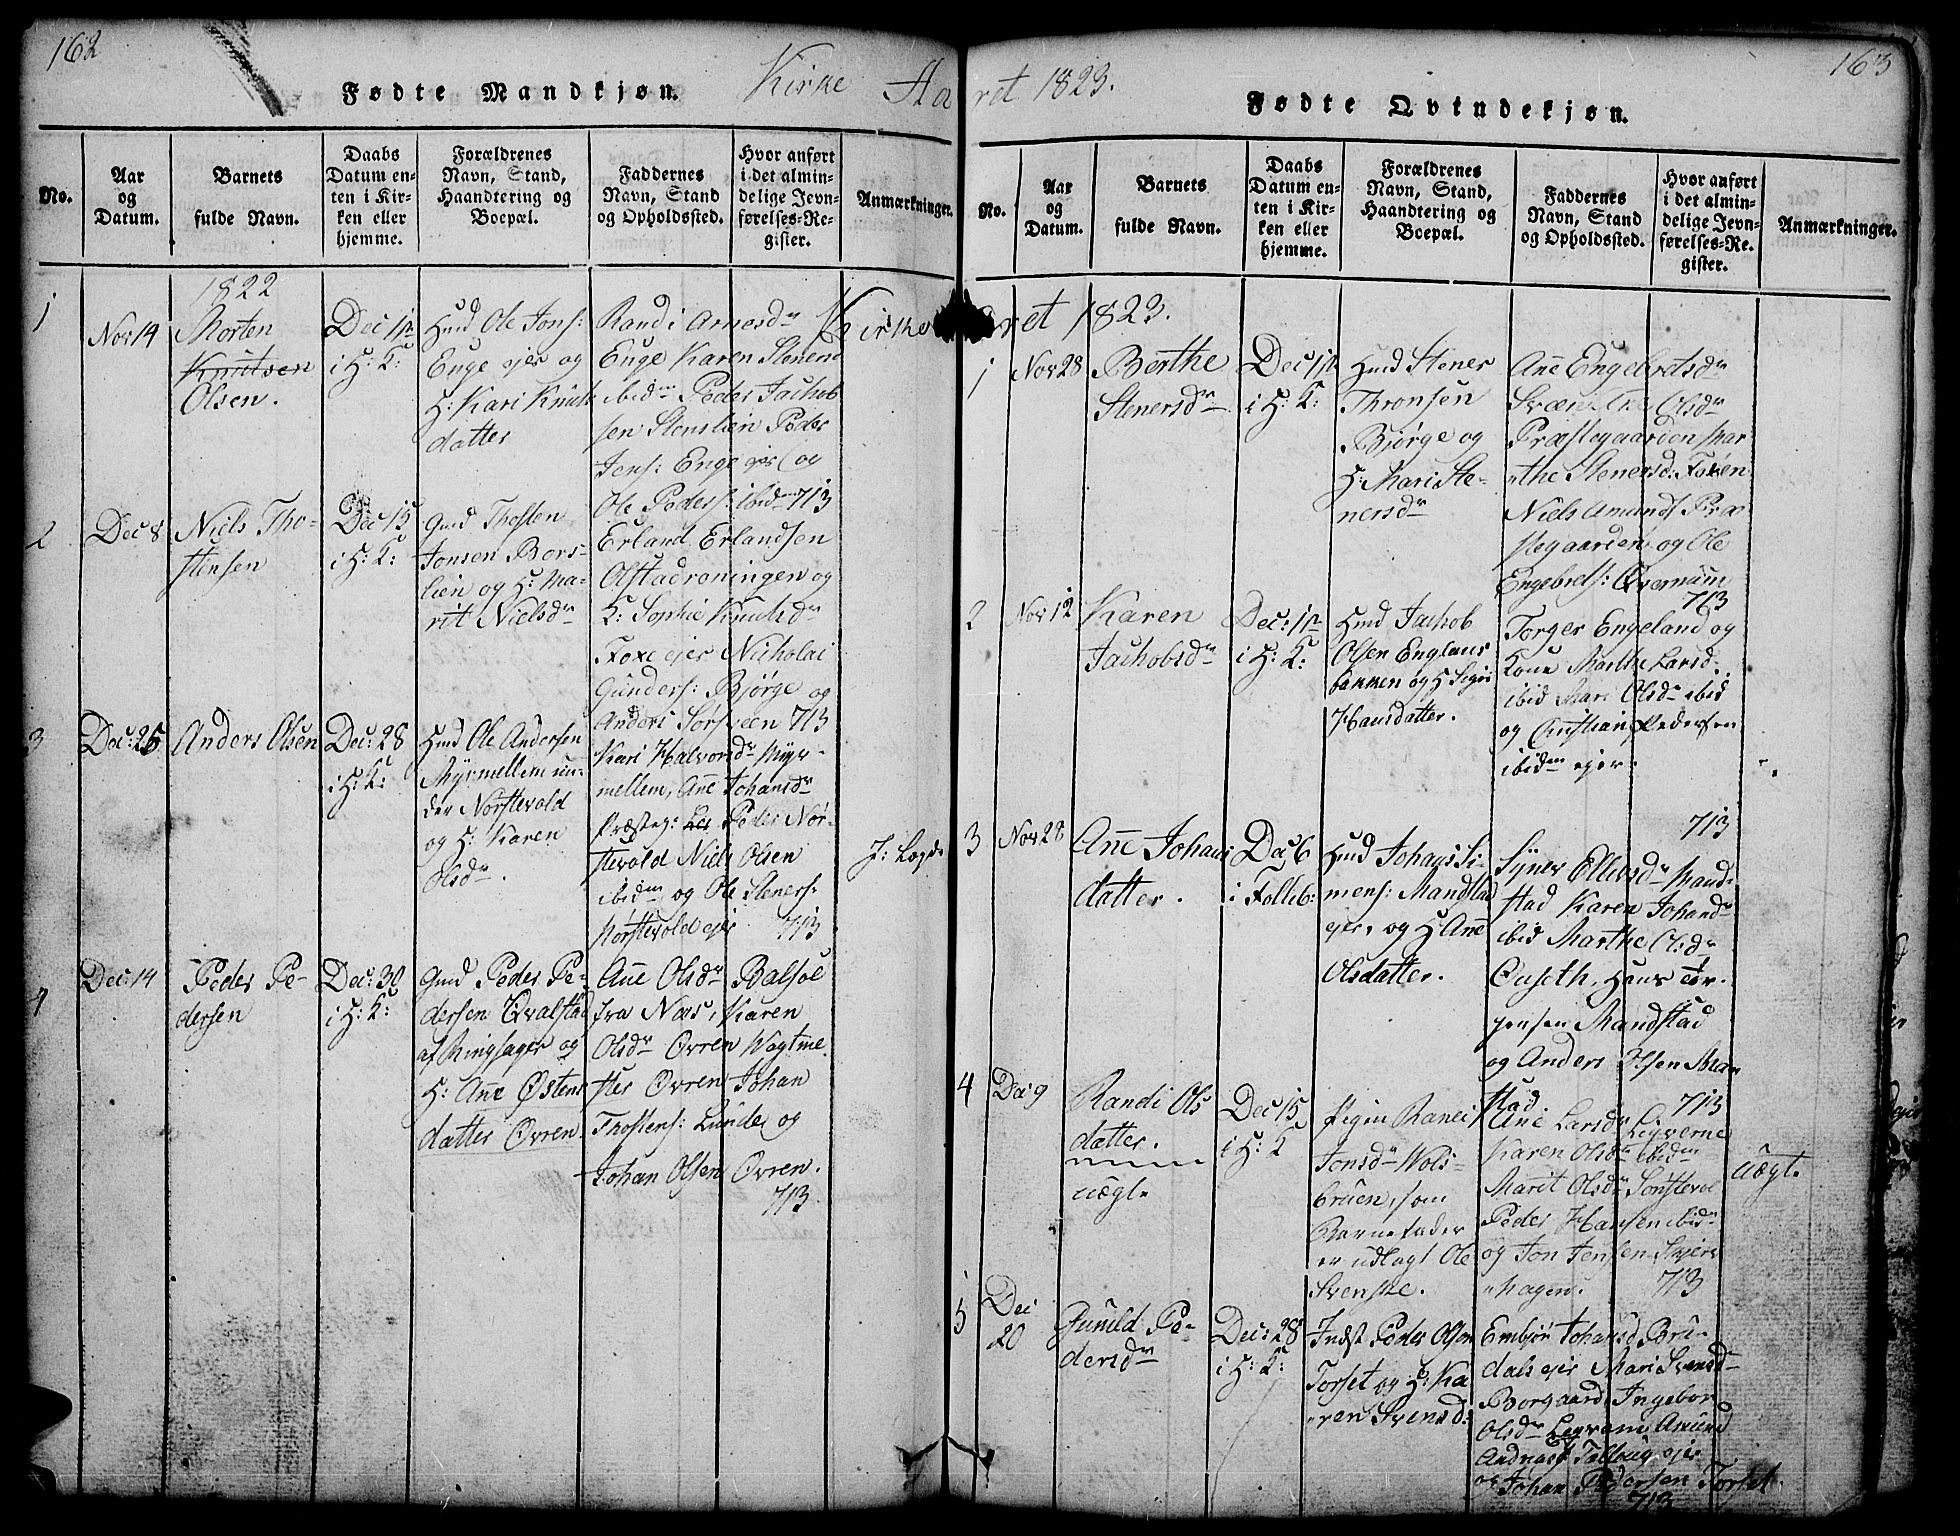 162
Fødte Mandkjøn.
Kirke Aa
No.
Aar
og
Datum.
Barnets
fulde Navn.
Daabs
Datum en-
ten i Kir-
ken eller
hjemme.
Forældrenes
Navn, Stand,
Haandtering og
Boepæl.
Faddernes
Navn, Stand
og Opholdssted.
Hvor anført
i det almin-
delige Jevn-
førelses-Re-
gister.
Anmærkninger.
1
1822
Nov 14
Morten
Knutsen
Olsen.
Dec 1ste
i H: K:
Huusmd Ole Jons:
Enge ejer og
H: Kari Knuts
datter
Randi Arnesdr
Enge Karen Steners
ibidm Peder Jachob
sen Stenslien Peder
Jens: Enge ejer og
Ole Peders: ibidm 713
Kirke
2
Dec 8
Niels Tho-
stensen
Dec 15
i H: K:
Gmd Thosten
Jonsen Bors-
lien og H: Ma-
rit Nielsdr
Erland Erlandsen
Olstadroningen og
K: Sophie Knutsdr
Foxe ejer Nicholai
Gunders: Bjørge og
Anders Sørsveen 713
3
Dec: 25
Anders Olsen
Dec: 28
i H: K:
Hmd Ole Andersen
Myrmellem un-
der Nørstevold
og H: Karen
Olsdr.
Kari Halvorsdr Myr-
mellem, Ane Johansdr
Præsteg: Peder Nør-
stevold Niels Olsen
ibidm og Ole Steners:
Nørstevold ejer 713
4
Dec: 14
Peder Pe-
dersen
Dec: 30
i H: K:
Gmd Peder Pe-
dersen Qvalstad
af Ringsager og
H: Ane Østens
datter Øvren
Ane Olsdr Balsøl
fra Næs, Karen
Olsdr Øvren
Øvren Johan
Thostens: Lunde og
Johan Olsen Øvren.
713
ret 1823.
163
Fødte Qvindekjøn.
No.
Aar
og
Datum.
Barnets
fulde Navn.
Daabs
Datum en-
ten i Kir-
ken eller
hjemme.
Forældrenes
Navn, Stand,
Haandtering og
Boepæl.
Faddernes
Navn, Stand
og Opholdssted.
Hvor anført
i det almin-
delige Jevn-
førelses-Re-
gister.
Anmærkninger.
ret 1823.
1
Nov 28
Berthe
Stenersdr
Dec 1ste
i H: K:
Hmd Stener
Thronsen
Bjørge og
H: Mari Ste-
nersdr
Ane Engebretsdr
Olsdr
Præstegaarden Mar-
the Stenersd:
Niels Amunds Præ
stegaarden og Ole
Engebrets: Overnum
713
2
Nov 12
Karen
Jachobsdr
Dec: 1ste
i H: K:
Hmd Jachob
Olsen Englaus
bakken og H Sigri
Hansdatter.
Torger Engeland og
Kone Marthe Larsd:
ibid Mari Olsdr ibid
og Christian Pedersen
ibidm ejer.
713
3
Nov 28
Ane Johans
datter.
Dec 6
i Follib:
Hmd Johans Si-
mens: Mandstad
ejer, og H Ane
Olsdatter.
Synev Ellevsdr Mand-
stad Karen Johansdr
ibid Marthe Olsdr
Onseth, Hans Jør-
gensen Mandstad
og Anders Olsen Man
stad
713
4
Dec 9
Randi Ols
datter.
uægt.
Dec 15
i H: K
Pigen Ranei
Jonsdr Wols-
bruen, som
Barnefader
er udlagt Ole
Svenske.
Ane Larsdr
Karen Olsdr ibidm
Marit Olsdr
Peder Hansen ibidm
og Jon Jensen
hagen.
713
Uægt.
5
Dec
20
Gunild Pe-
dersdr
Dec: 28
i H: K:
Indst Peder Olsen
Torset og H: Ka
ren Svensd:
Embjør Johansd Bru-
dals ejer Mari Svensd
Borgaard Ingebor
Olsdr Amund
ejer
og Johan Pedersen Torset.
713